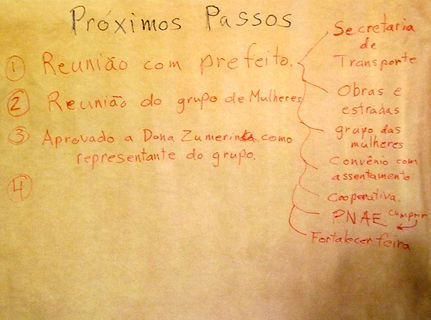 Próximos Passos
① Reunião com prefeito.
Secretaria
de
Transporte
Obras e
estradas
grupo das
mulheres
Convênio com
assentamento
Cooperativa.
PNAE cumprir
Fortalecer feira
② Reunião do grupo de Mulheres
③ Aprovado a Dona Zumerinda como
representante do grupo.
④